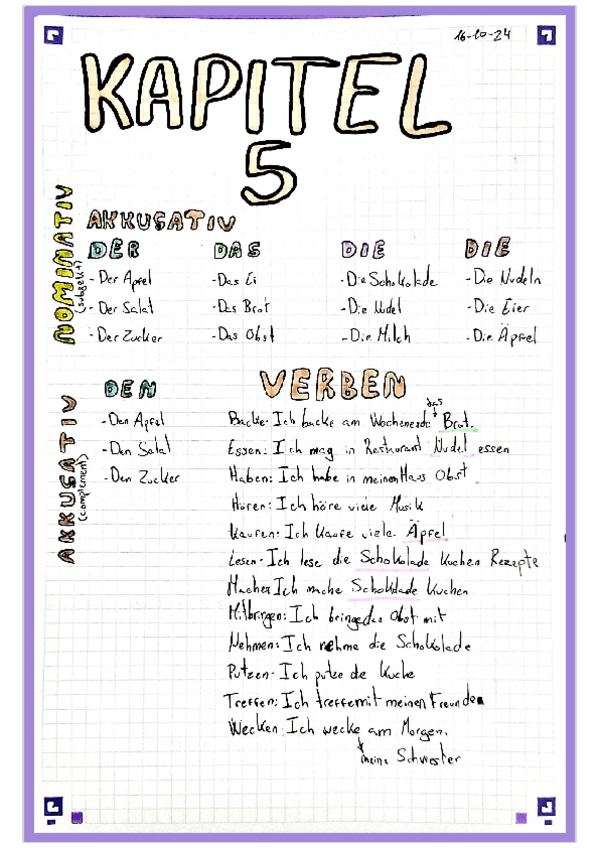 16-10-24
KAPITEL
5
NOMINATIV
(subjekt)
AKKUSATIV
DER DAS DIE DIE
- Der Apfel - Das Ei - Die Schokolade - Die Nudeln
- Der Salat - Das Brot - Die Nudel - Die Eier
- Der Zucker - Das Obst - Die Milch - Die Äpfel
AKKUSATIV
(complement)
DEN
- Den Apfel
- Den Salat
- Den Zucker
VERBEN
das
Backe: Ich backe am Wochenende Brot.
Essen: Ich mag in Restaurant Nudel essen
Haben: Ich habe in meinen Haus Obst.
Hören: Ich höre viele Musik
Kaufen: Ich kaufe viele Äpfel
Lesen: Ich lese die Schokolade Kuchen Rezepte
Machen Ich mache Schokolade Kuchen
Mitbringen: Ich bringe das Obst mit
Nehmen: Ich nehme die Schokolade
Putzen: Ich putze de Kuche
Treffen: Ich treffe mit meinen Freunden
Wecken: Ich wecke am Morgen.
meine Schwester